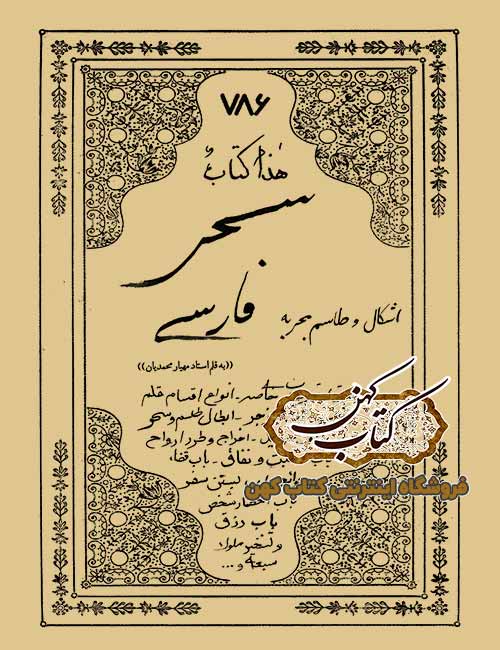 ۷۸۶
هذا کتاب
سحر
فارسی
اشکال و طلسم مجربه
((به قلم استاد مهیار محمدیان))
عناصر - انواع اقسام قلم
ابطال طلسم و سحر
اخراج و طرد ارواح
و نفاق - باب قفا
بستن سفر
باب احضار شخص
باب رزق
و تسخیر ملوک
سبعة و...
کتاب کهن
فروشگاه اینترنتی کتاب کهن